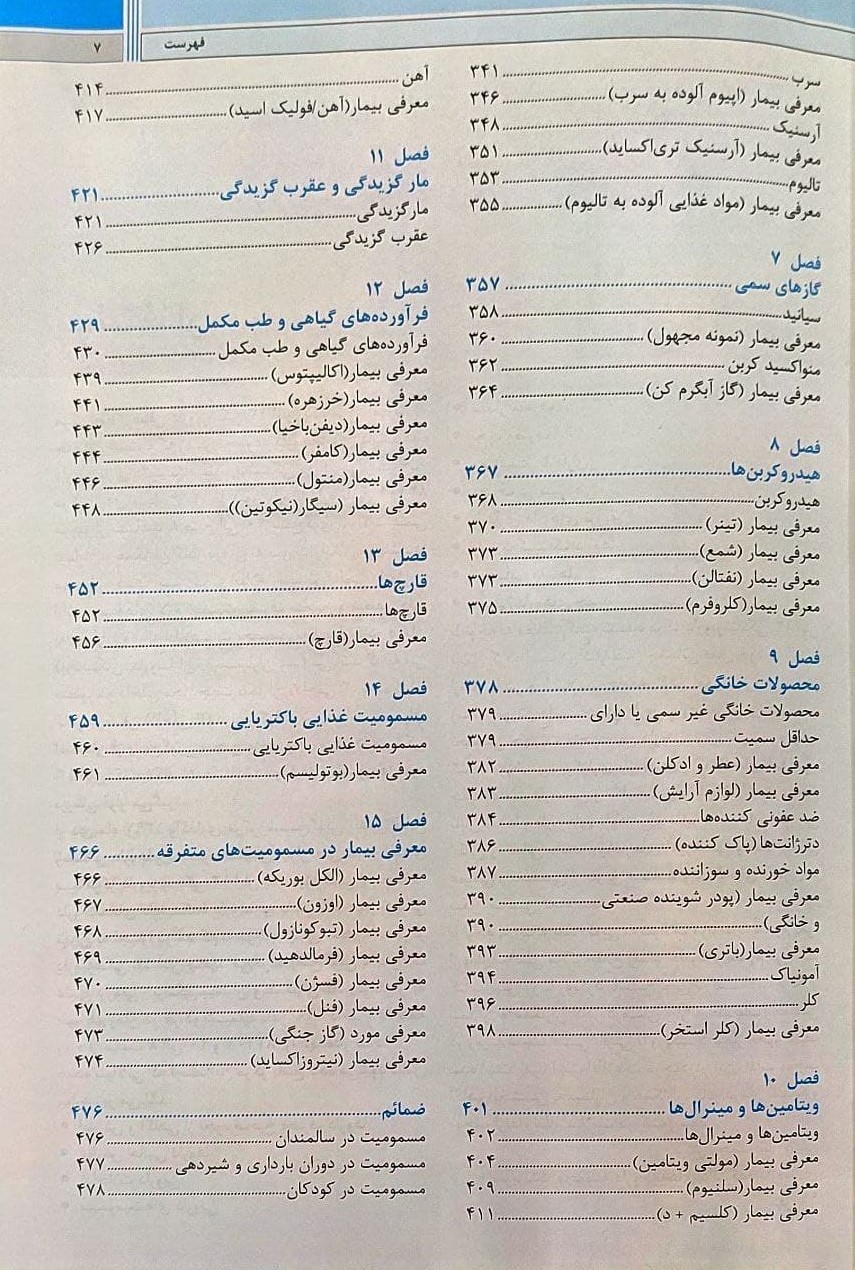 فهرست
۷
سرب ۳۴۱
معرفی بیمار (اپیوم آلوده به سرب) ۳۴۶
آرسنیک ۳۴۸
معرفی بیمار (آرسنیک تری‌اکساید) ۳۵۱
تالیوم ۳۵۳
معرفی بیمار (مواد غذایی آلوده به تالیوم) ۳۵۵
فصل ۷
گازهای سمی ۳۵۷
سیانید ۳۵۸
معرفی بیمار (نمونه مجهول) ۳۶۰
منواکسید کربن ۳۶۲
معرفی بیمار (گاز آبگرم کن) ۳۶۴
فصل ۸
هیدروکربن‌ها ۳۶۷
هیدروکربن ۳۶۸
معرفی بیمار (تینر) ۳۷۰
معرفی بیمار (شمع) ۳۷۳
معرفی بیمار (نفتالن) ۳۷۳
معرفی بیمار(کلروفرم) ۳۷۵
فصل ۹
محصولات خانگی ۳۷۸
محصولات خانگی غیر سمی یا دارای ۳۷۹
حداقل سمیت ۳۷۹
معرفی بیمار (عطر و ادکلن) ۳۸۲
معرفی بیمار (لوازم آرایش) ۳۸۳
ضد عفونی کننده‌ها ۳۸۴
دترژانت‌ها (پاک کننده) ۳۸۶
مواد خورنده و سوزاننده ۳۸۷
معرفی بیمار (پودر شوینده صنعتی ۳۹۰
و خانگی) ۳۹۰
معرفی بیمار(باتری) ۳۹۳
آمونیاک ۳۹۴
کلر ۳۹۶
معرفی بیمار (کلر استخر) ۳۹۸
فصل ۱۰
ویتامین‌ها و مینرال‌ها ۴۰۱
ویتامین‌ها و مینرال‌ها ۴۰۲
معرفی بیمار (مولتی ویتامین) ۴۰۴
معرفی بیمار(سلنیوم) ۴۰۹
معرفی بیمار (کلسیم + د) ۴۱۱
آهن ۴۱۴
معرفی بیمار(آهن/فولیک اسید) ۴۱۷
فصل ۱۱
مار گزیدگی و عقرب گزیدگی ۴۲۱
مارگزیدگی ۴۲۱
عقرب گزیدگی ۴۲۶
فصل ۱۲
فرآورده‌های گیاهی و طب مکمل ۴۲۹
فرآورده‌های گیاهی و طب مکمل ۴۳۰
معرفی بیمار(اکالیپتوس) ۴۳۹
معرفی بیمار(خرزهره) ۴۴۱
معرفی بیمار(دیفن‌باخیا) ۴۴۳
معرفی بیمار(کامفر) ۴۴۴
معرفی بیمار(منتول) ۴۴۶
معرفی بیمار (سیگار(نیکوتین)) ۴۴۸
فصل ۱۳
قارچ‌ها ۴۵۲
قارچ‌ها ۴۵۲
معرفی بیمار(قارچ) ۴۵۶
فصل ۱۴
مسمومیت غذایی باکتریایی ۴۵۹
مسمومیت غذایی باکتریایی ۴۶۰
معرفی بیمار(بوتولیسم) ۴۶۱
فصل ۱۵
معرفی بیمار در مسمومیت‌های متفرقه ۴۶۶
معرفی بیمار (الکل بوریکه) ۴۶۶
معرفی بیمار (اوزون) ۴۶۷
معرفی بیمار (تبوکونازول) ۴۶۸
معرفی بیمار (فرمالدهید) ۴۶۹
معرفی بیمار (فسژن) ۴۷۰
معرفی بیمار (فنل) ۴۷۱
معرفی مورد (گاز جنگی) ۴۷۳
معرفی بیمار (نیتروزاکساید) ۴۷۴
ضمائم ۴۷۶
مسمومیت در سالمندان ۴۷۶
مسمومیت در دوران بارداری و شیردهی ۴۷۷
مسمومیت در کودکان ۴۷۸